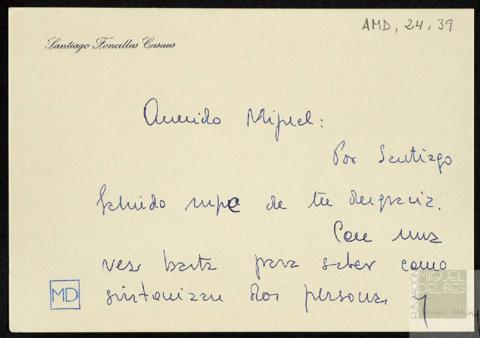 AMD, 24, 39
Santiago Foncillas Casaus
Querido Miguel:
Por Santiago
Galindo supe de tu desgracia.
Con una
vez basta para saber como
sintonizan dos personas y
MD
FUNDACIÓN
MIGUEL
DELIBES